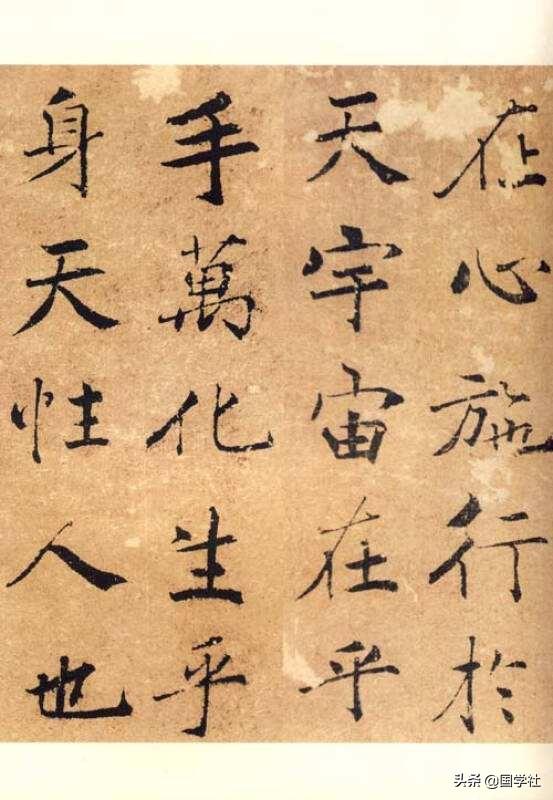 在心施行於
天宇宙在乎
手萬化生乎
身天性人也
头条 @国学社